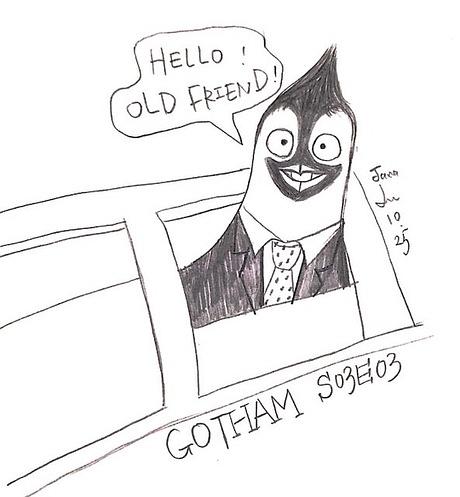 HELLO!
OLD FRIEND!
Jana
10.
25
GOTHAM S03E03